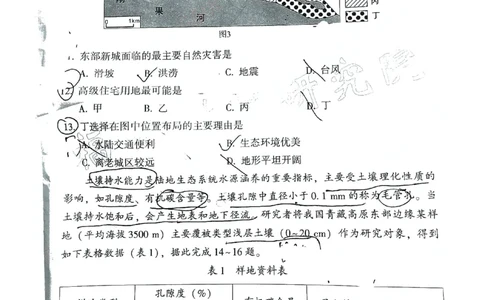 丙
果
河
丁
0 1km
图3
. 东部新城面临的最主要自然灾害是
A. 滑坡 B. 洪涝 C. 地震 D. 台风
12. 高级住宅用地最可能是
A. 甲 B. 乙 C. 丙 D. 丁
13. 丁选择在图中位置布局的主要理由是
A. 水陆交通便利 B. 生态环境优美
C. 离老城区较远 D. 地形平坦开阔
土壤持水能力是陆地生态系统水源涵养的重要指标，主要受土壤理化性质的
影响，如孔隙度、有机碳含量等。土壤孔隙中直径小于 0.1 mm 的称为毛管孔。当
土壤持水饱和后，会产生地表和地下径流。研究者将我国青藏高原东部边缘某样
地（平均海拔 3500 m）主要覆被类型浅层土壤（0~20 cm）作为研究对象，得到
如下表格数据（表 1），据此完成 14~16 题。
表 1 样地资料表
孔隙度（%）